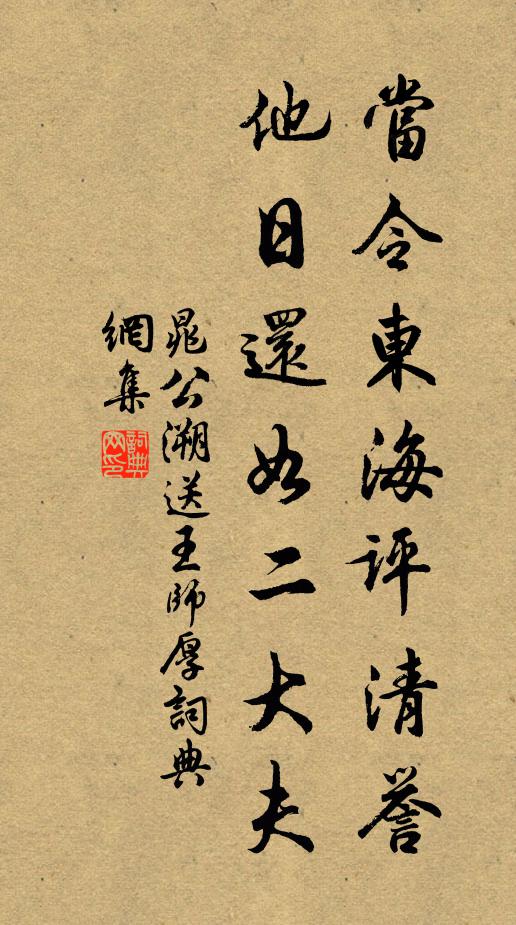 當令東海評清譽
他日還如二大夫
晁公溯送王師厚詞典
網集
詞典網印